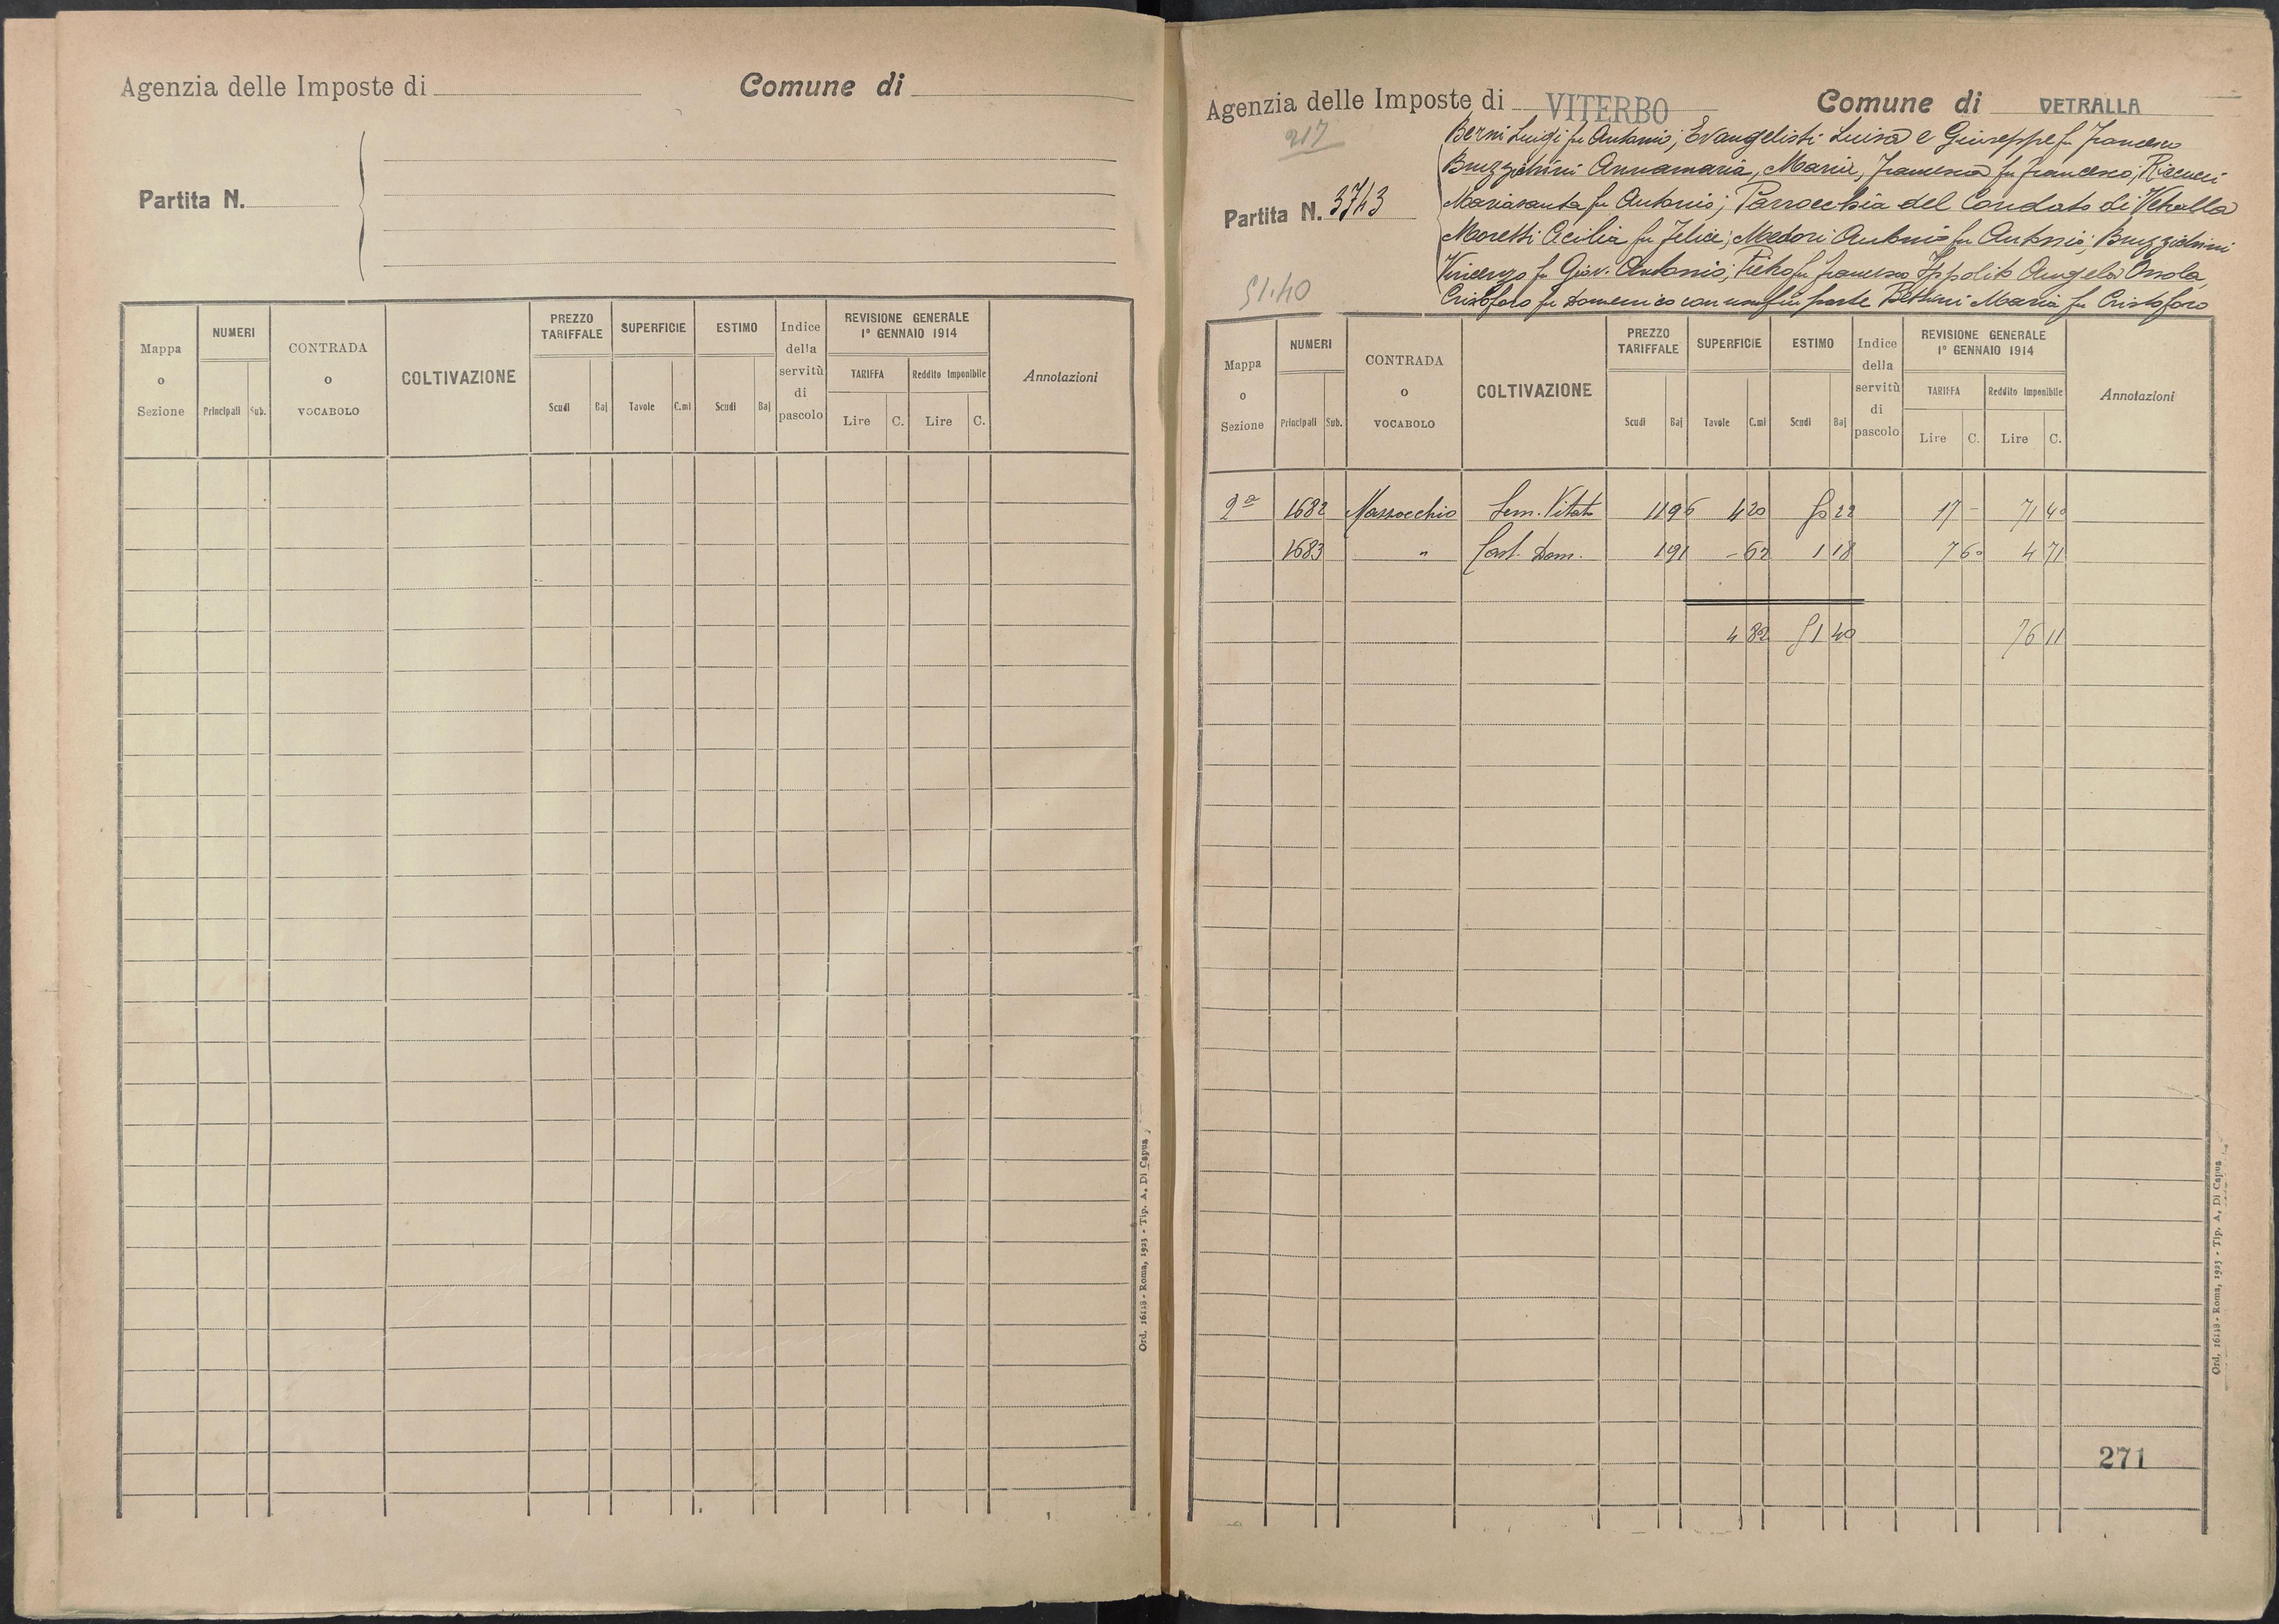 Agenzia delle Imposte di
Comune di
Partita N.
Mappa o Sezione
NUMERI
Principali Sub.
CONTRADA o VOCABOLO
COLTIVAZIONE
PREZZO TARIFFALE
Scudi Baj
SUPERFICIE
Tavole C.mi
ESTIMO
Scudi Baj
Indice della servitù di pascolo
REVISIONE GENERALE
1° GENNAIO 1914
TARIFFA Reddito Imponibile
Lire C. Lire C.
Annotazioni
Ord. 16118 - Roma, 1923 - Tip. A. Di Capua
Agenzia delle Imposte di VITERBO
Comune di VETRALLA
217
Partita N. 3743
Berni Luigi fu Antonio; Evangelisti Luisa e Giuseppe fu Francesco
Bruzzichini Annamaria, Maria, Francesca fu Francesco; Ricucci
Mariasanta fu Antonio; Parrocchia del Condato di Vetralla
Moretti Cecilia fu Felice; Medori Antonio fu Antonio; Bruzzichini
Vincenzo fu Giov. Antonio; Pietro fu Francesco Ippolito Angela Orsola
Cristoforo fu Domenico con usuf in parte Bettini Maria fu Cristoforo
51.40
Mappa o Sezione
NUMERI
Principali Sub.
CONTRADA o VOCABOLO
COLTIVAZIONE
PREZZO TARIFFALE
Scudi Baj
SUPERFICIE
Tavole C.mi
ESTIMO
Scudi Baj
Indice della servitù di pascolo
REVISIONE GENERALE
1° GENNAIO 1914
TARIFFA Reddito Imponibile
Lire C. Lire C.
Annotazioni
2a 1682 Marrocchio Sem. Vitato 11 96 4 20 50 22 17 - 71 40
1683 " Cast. Dom. 1 91 - 62 1 18 7 60 4 71
4 82 51 40 76 11
271
Ord. 16118 - Roma, 1923 - Tip. A. Di Capua